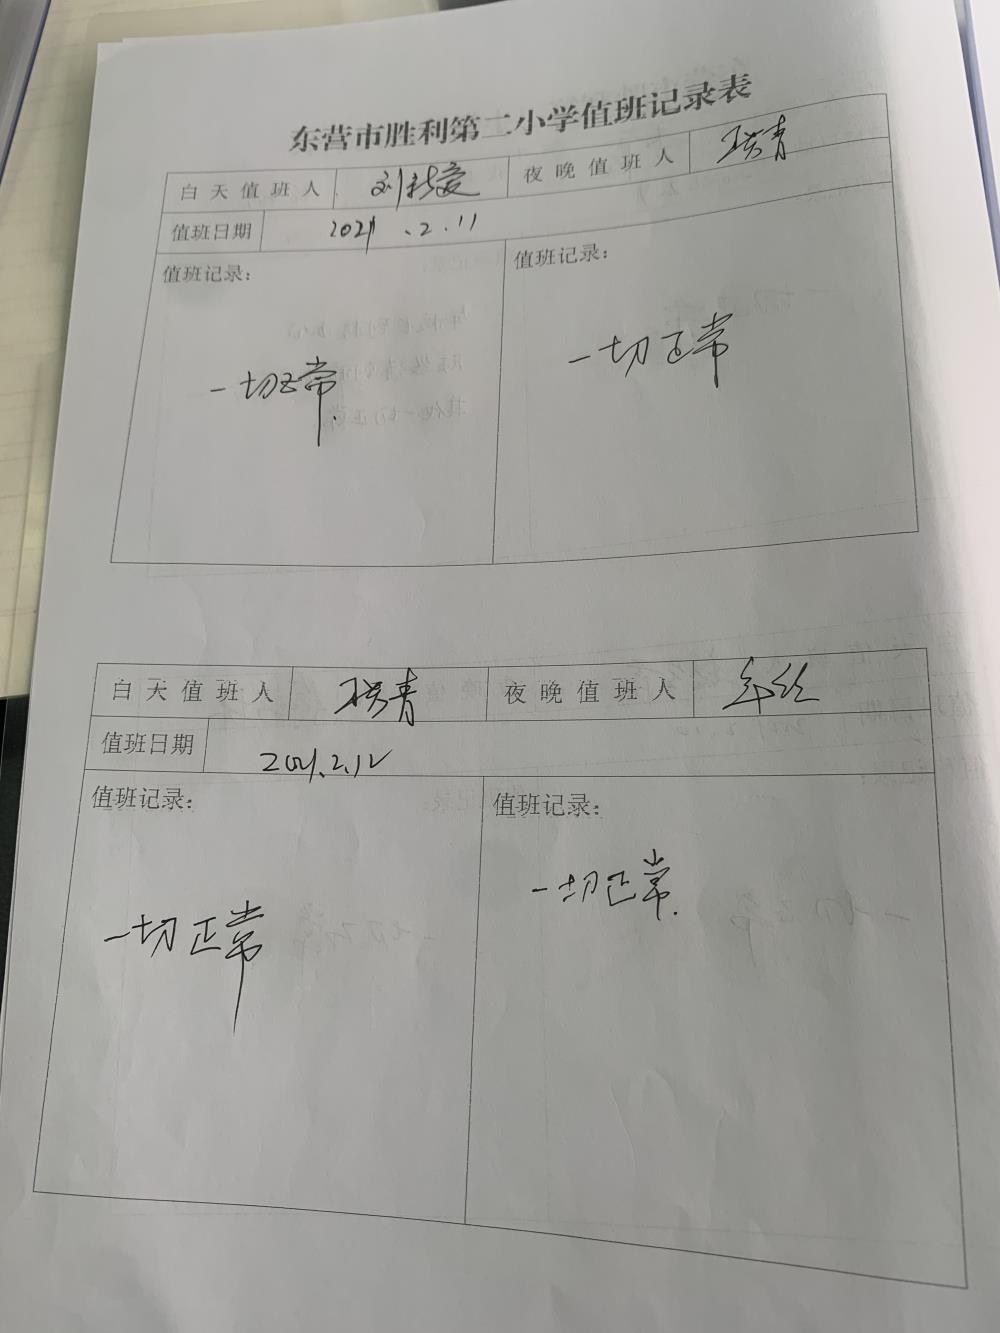 东营市胜利第二小学值班记录表
白天值班人 刘 夜晚值班人 青
值班日期 2021.2.11
值班记录： 值班记录：
一切正常 一切正常
白天值班人 青 夜晚值班人
值班日期 2021.2.12
值班记录： 值班记录：
一切正常 一切正常.